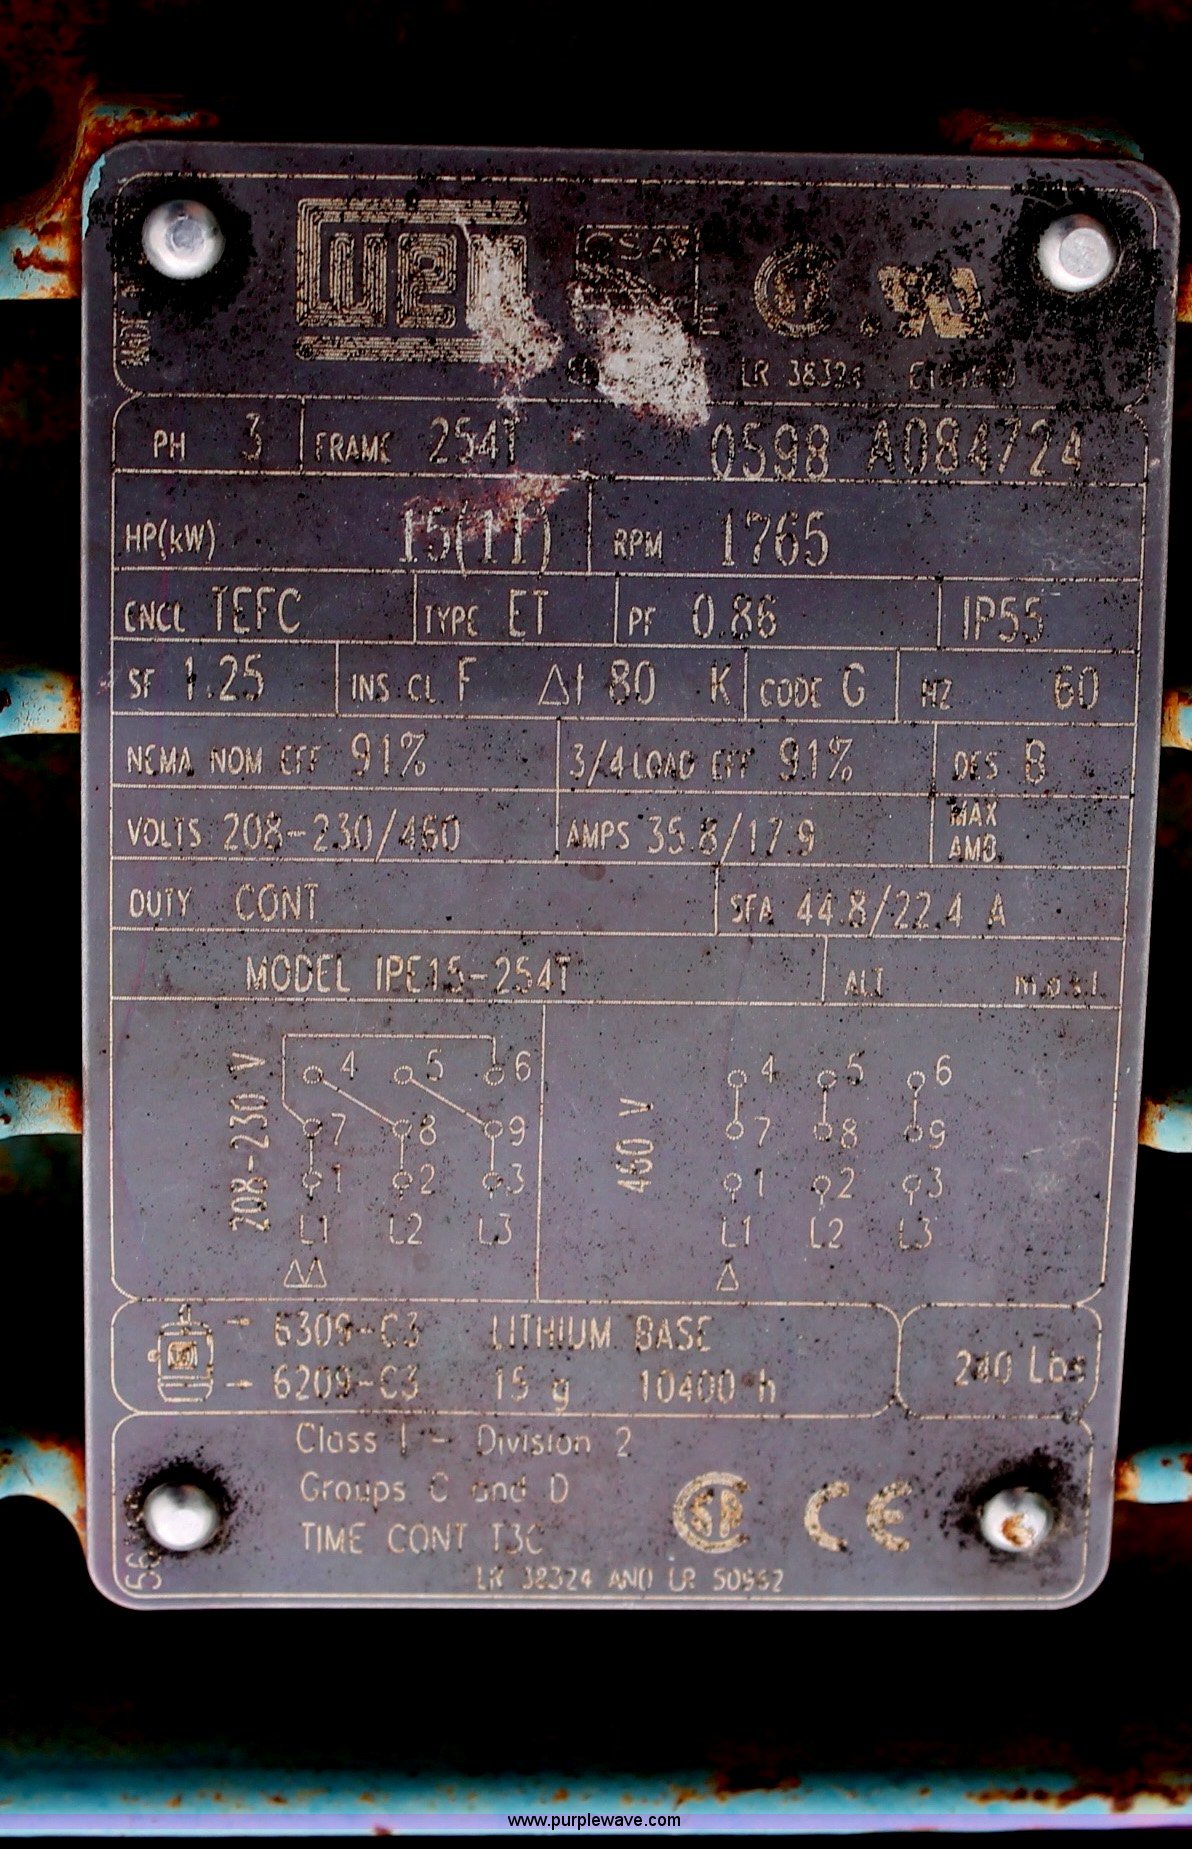 LR 38324
PH 3 FRAME 254T 0598 A084724
HP(kW) 15(11) RPM 1765
ENCL TEFC TYPE ET PF 0.86 IP55
SF 1.25 INS CL F Δt 80 K CODE G HZ 60
NEMA NOM EFF 91% 3/4 LOAD EFF 91% DES B
VOLTS 208-230/460 AMPS 35.8/17.9 MAX AMB.
DUTY CONT SFA 44.8/22.4 A
MODEL IPE15-254T ALT m.a.s.l.
208-230 V
4 5 6
7 8 9
1 2 3
L1 L2 L3
460 V
4 5 6
7 8 9
1 2 3
L1 L2 L3
6309-C3 LITHIUM BASE
6209-C3 15 g 10400 h
240 Lbs
Class I - Division 2
Groups C and D
TIME CONT T3C
CE
LR 38324 AND LR 50962
www.purplewave.com